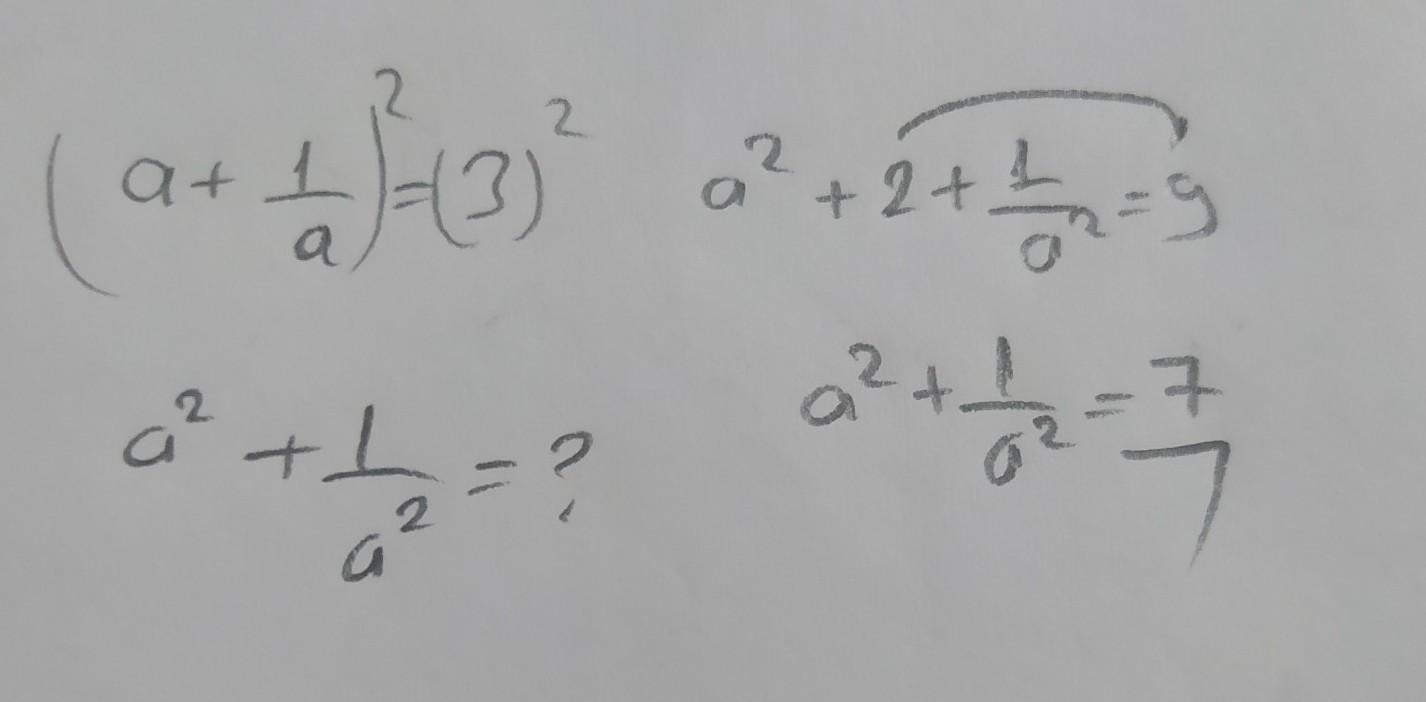 (a + 1/a)² = (3)²
a² + 1/a² = ?
a² + 2 + 1/a² = 9
a² + 1/a² = 7